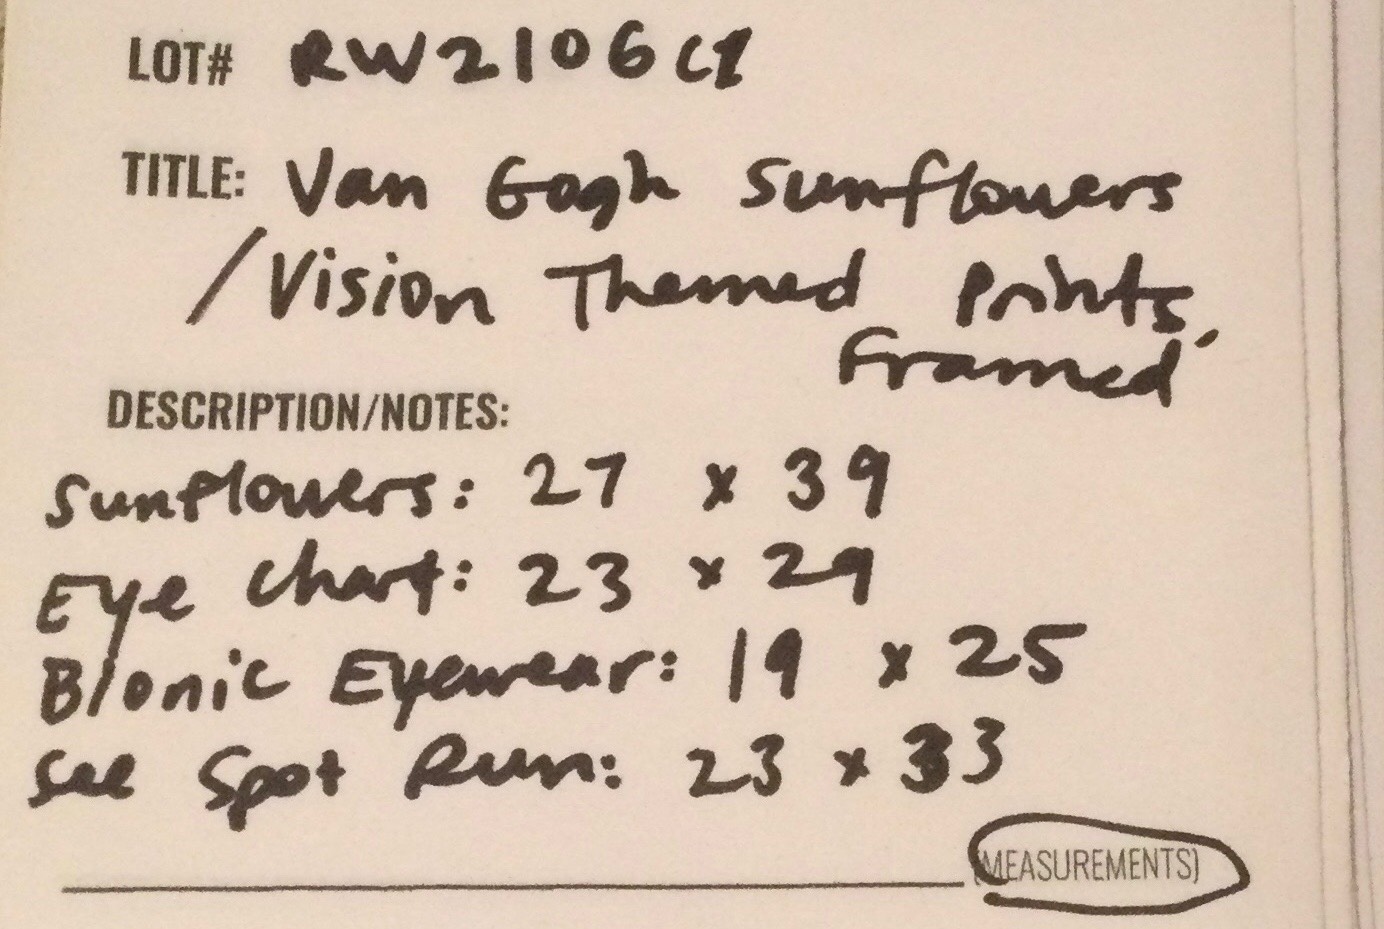 LOT# RW2106C1
TITLE: Van Gogh Sunflowers
/Vision Themed Prints,
Framed
DESCRIPTION/NOTES:
Sunflowers: 27 x 39
Eye Chart: 23 x 29
Bionic Eyewear: 19 x 25
See Spot Run: 23 x 33
(MEASUREMENTS)